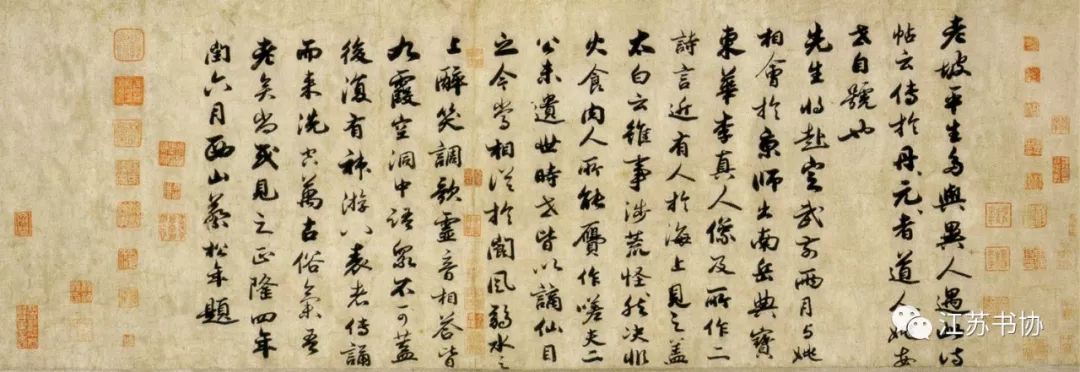 老坡平生多與異人遇此詩
帖云傳於丹元者道人姚安
世自號也
先生將赴定武前兩月与姚
相會於京師出南岳典寶
東華李真人像及所作二
詩言近有人於海上見之蓋
太白云雖事涉荒怪然决非
火食肉人所能贋作嗟夫二
公未遺世時世皆以謫仙目
之今當相從於閬風弱水之
上醉笑調歌靈音相答皆
九霞空洞中語不可蓋
後復有神游八表者傳誦
而来洗空萬古俗氣吾
老矣尚或見之正隆四年
閏六月西山蔡松年題
江苏书协